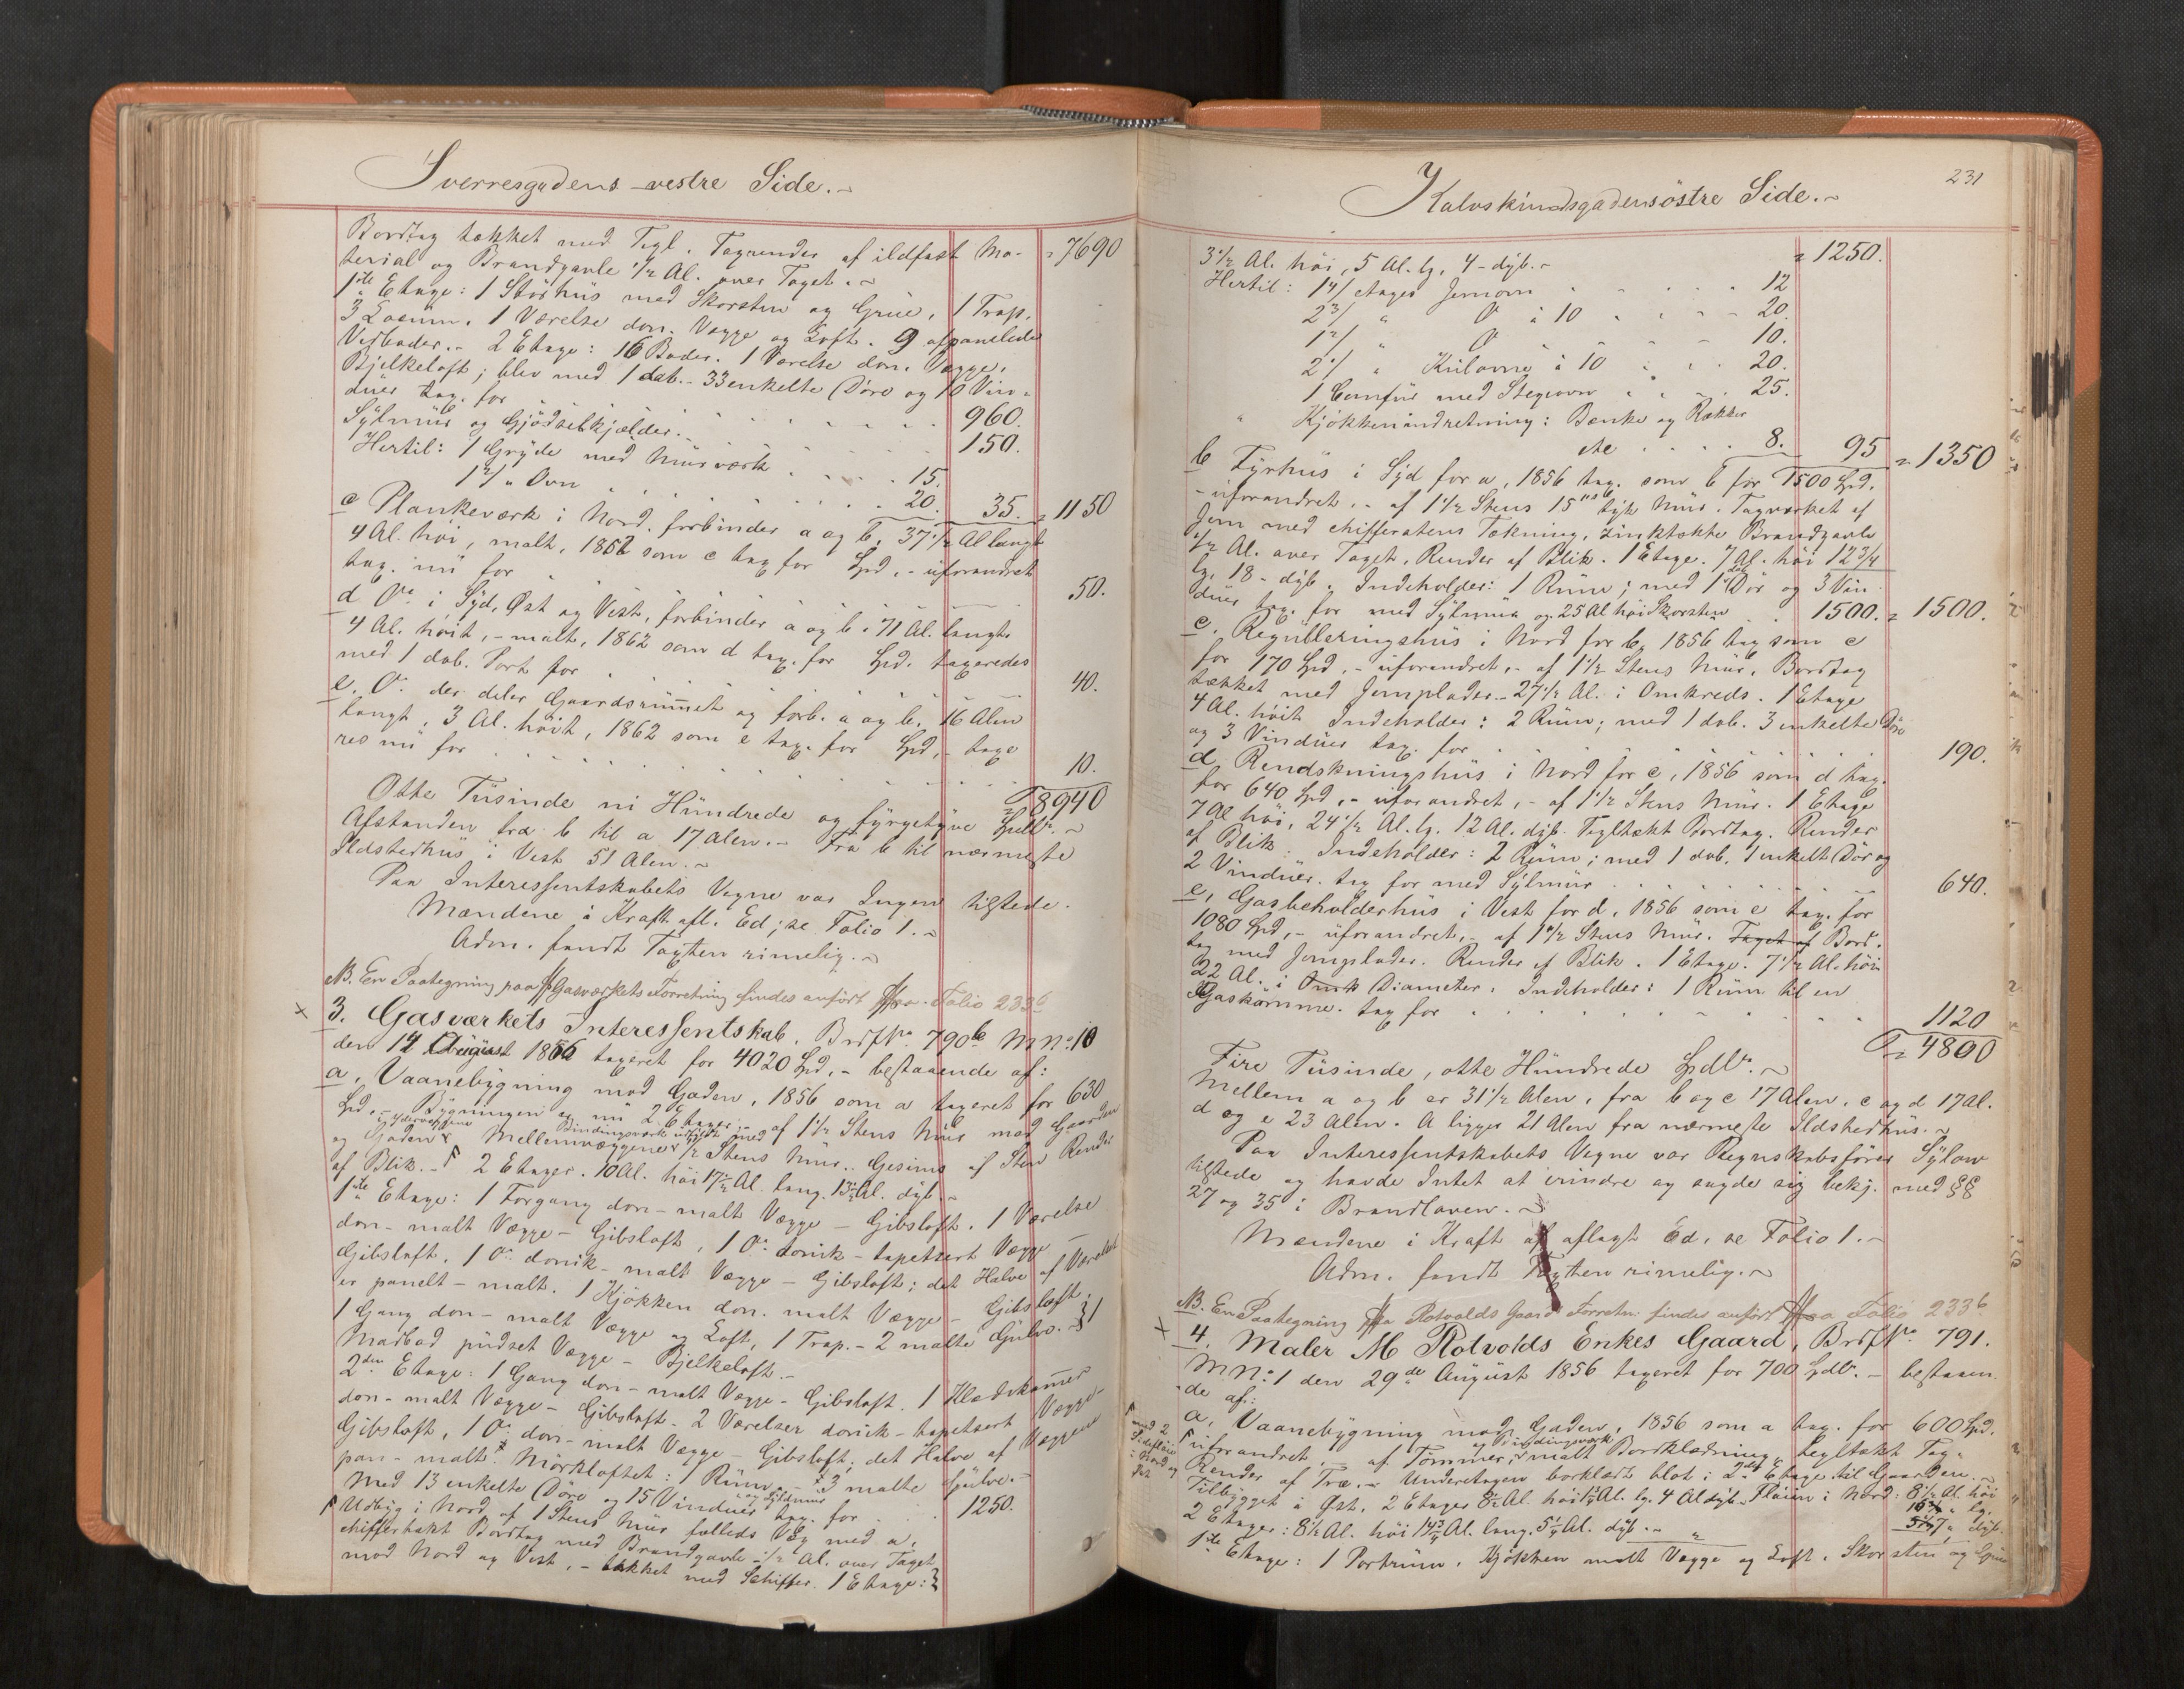 Sverresgadens vestre Side.
Bordtag tækket med Tegl. Tagrender af ildfast Ma- = 7690
terial og Brandgavle 1/2 Al. over Taget.
1ste Etage: 1 Störhüs med Skorsten og Grüe, 1 Trap,
3 Locüm. 1 Værelse don. Vægge og Loft. 9 afpanelede
Vedboder. 2 Etage: 16 Boder. 1 Værelse don. Vægge,
Bjelkeloft; blev med 1 dob. 33 enkelte Döre og 10 Vin-
düer tax. for 960.
Sylmür og Gjödselkjælder. 150.
Hertil: 1 Gryde med Mürværk 15.
1 2/ " Ovn 20. 35. = 1150
c Plankeværk i Nord, forbinder a og b. 37 1/2 Al langt
4 Al. höi, malt, 1862 som c tax for Spd, - üforandret
tax. nü for 50.
d Do. i Syd, Øst og Vest, forbinder a og b. 71 Al. langt.
4 Al. höit, - malt, 1862 som d tax. for Spd. taxeredes
med 1 dob. Port for 40.
e. Do. der deler Gaardsrümmet og forb. a og b. 16 Alen
langt, 3 Al. höit, 1862 som e tax. for Spd, - taxe
res nü for 10.
= 8940
Otte Tüsinde ni Hündrede og fyrgetyve Spdlr.
Afstanden fra b til a 17 Alen. - Fra b til nærmeste
Ildstedhüs i Vest 51 Alen.
Paa Interessentskabets Vegne var Ingen tilstede.
Mændene i Kraft afl. Ed; se Folio 1.
Adm. fandt Taxten rimelig.
NB. En Paategning paa Gasværkets Forretning findes anfört Folio 233b
3. Gasværkets Interessentskab. Brdf No. 790b M No. 10
den 14 August 1856 taxeret for 4020 Spd, - bestaaende af:
a, Vaanebygning mod Gaden, 1856 som a taxeret for 630
Spd. - Bygningen er nü 2 Etager: - af 1 1/2 Stens Mür mod Gaarden
og Gaden Ydervæggene Mellemvæggene Bindingsværk udfyldt med 1/2 Stens Mür. Gesims af Sten Render
af Blik. - 2 Etager. 10 Al. höi 17 1/2 Al. lang. 13 1/2 Al. dyb.
1ste Etage: 1 Forgang don - malt Vægge - Gibsloft. 1 Værelse
don - malt Vægge - Gibsloft, 1 Do. donik - tapetsert Vægge -
Gibsloft, 1 Do. donik - malt Vægge - Gibsloft; det Halve af Værelset
er panelt - malt. 1 Kjökken don. malt Vægge - Gibsloft.
1 Gang don - malt Vægge og Loft, 1 Trap. - 2 malte Gülve. 1
Madbod püdset Vægge - Bjelkeloft.
2den Etage: 1 Gang don - malt Vægge - Gibsloft. 1 Klædekammer
don - malt Vægge - Gibsloft - 2 Værelser donik - tapetsert Vægge -
Gibsloft, 1 Do. don - malt Vægge - Gibsloft; det Halve af Væggene
pan - malt. Mörkloftet: 1 Rüm - 3 malte Gülve. -
Med 13 enkelte Döre og 15 Vindüer og Syldmür tax. for 1250.
Udbyg i Nord af 1 Stens Mür fælleds Væg med a,
skiffertækt Bordtag med Brandgavle 1/2 Al. over Taget
mod Nord og Vest, - tækket med Schiffer. 1 Etage:
Kalvskindsgadens östre Side.
231
3 1/2 Al. höi, 5 Al. lg. 4 - dyb. = 1250.
Hertil: 1 4/ Etages Jernovn 12
2 3/ " Do á 10 20.
1 2/ " Do 10.
2 1/ " Külovne á 10 20.
1 Comfür med Stegeovn 25.
" Kjökkenindretning: Bænke og Rækker
etc 8. 95 = 1350
b Fyrhüs i Syd for a, 1856 tax. som b for 1500 Spd.
- üforandret, - af 1 1/2 Stens 15" tyk Mür. Tagværket af
Jern med skifferstens Tækning, zinktækte Brandgavle
1/2 Al. over Taget, Render af Blik. 1 Etage. 7 Al. höi 12 3/4
lg. 18 - dyb. Indeholder: 1 Rüm; med 1 dob Dör og 3 Vin
düer tax. for med Sylmür og 25 Al höi Skorsten 1500. = 1500.
c. Regülleringshüs i Nord for b, 1856 tax som c
for 170 Spd, - üforandret, - af 1 1/2 Stens Mür, Bordtag
tækket med Jernplader. - 27 1/2 Al. i Omkreds. 1 Etage
4 Al. höit Indeholder: 2 Rüm; med 1 dob. 3 enkelte Döre
og 3 Vindüer tax. for 190.
d Rendskningshüs i Nord for c, 1856 som d tax.
for 640 Spd, - üforandret, - af 1 1/2 Stens Mür. 1 Etage
7 Al höi, 24 1/2 Al. lg. 12 Al. dyb. Tegltækt Bordtag. Render
af Blik. Indeholder: 2 Rüm; med 1 dob. 1 enkelt Dör og
2 Vindüer. tax for med Sylmür 640.
e, Gasbeholderhüs i Vest for d, 1856 som e tax. for
1080 Spd, - üforandret, - af 1 1/2 Stens Mür. Taget af Bord.
tag med Jernplader. Render af Blik. 1 Etage. 7 1/2 Al. höi
22 Al. i Omk Diameter. Indeholder: 1 Rüm til en
Gaskumme. tax for 1120
= 4800
Fire Tüsinde, otte Hündrede Spdlr.
Mellem a og b er 31 1/2 Alen, fra b og c 17 Alen, c og d 17 Al.
d og e 23 Alen. A ligger 21 Alen fra nærmeste Ildstedhüs.
Paa Interessentskabets Vegne var Regnskabsförer Sylow
tilstede og havde Intet at erindre og sagde sig bekj. med §§
27 og 35 i Brandloven.
Mændene i Kraft af aflagt Ed, se Folio 1.
Adm. fandt Taxten rimelig.
NB. En Paategning Rotvolds Gaard Forretn. findes anfört Folio 233b
4. Maler M Rotvolds Enkes Gaard, Brdf No. 791.
M No. 1 den 29de August 1856 taxeret for 700 Spdlr. - bestaaen
de af:
a, Vaanebygning mod Gaden, 1856 som a tax. for 600 Spd.
med 2 Sideflöie i Nord og Øst
üforandret, - af Tömmer, og Bindingsværk malt Bordklædning tegltækt Tag.
Render af Træ. - Underetagen borklædt blot i 2den Etage til Gaarden.
Tilbygget i Øst. 2 Etager 8 1/2 Al. höi Al. lg. 4 Al dyb. Flöien i Nord: 8 1/2 Al. höi
2 Etager: 8 1/2 Al. höi 14 3/4 Al. lang. 5 1/4 Al. dyb. " lg. 7 " dyb.
1ste Etage: 1 Portrüm. Kjökken malt Vægge og Loft. Skorsten og Grüe